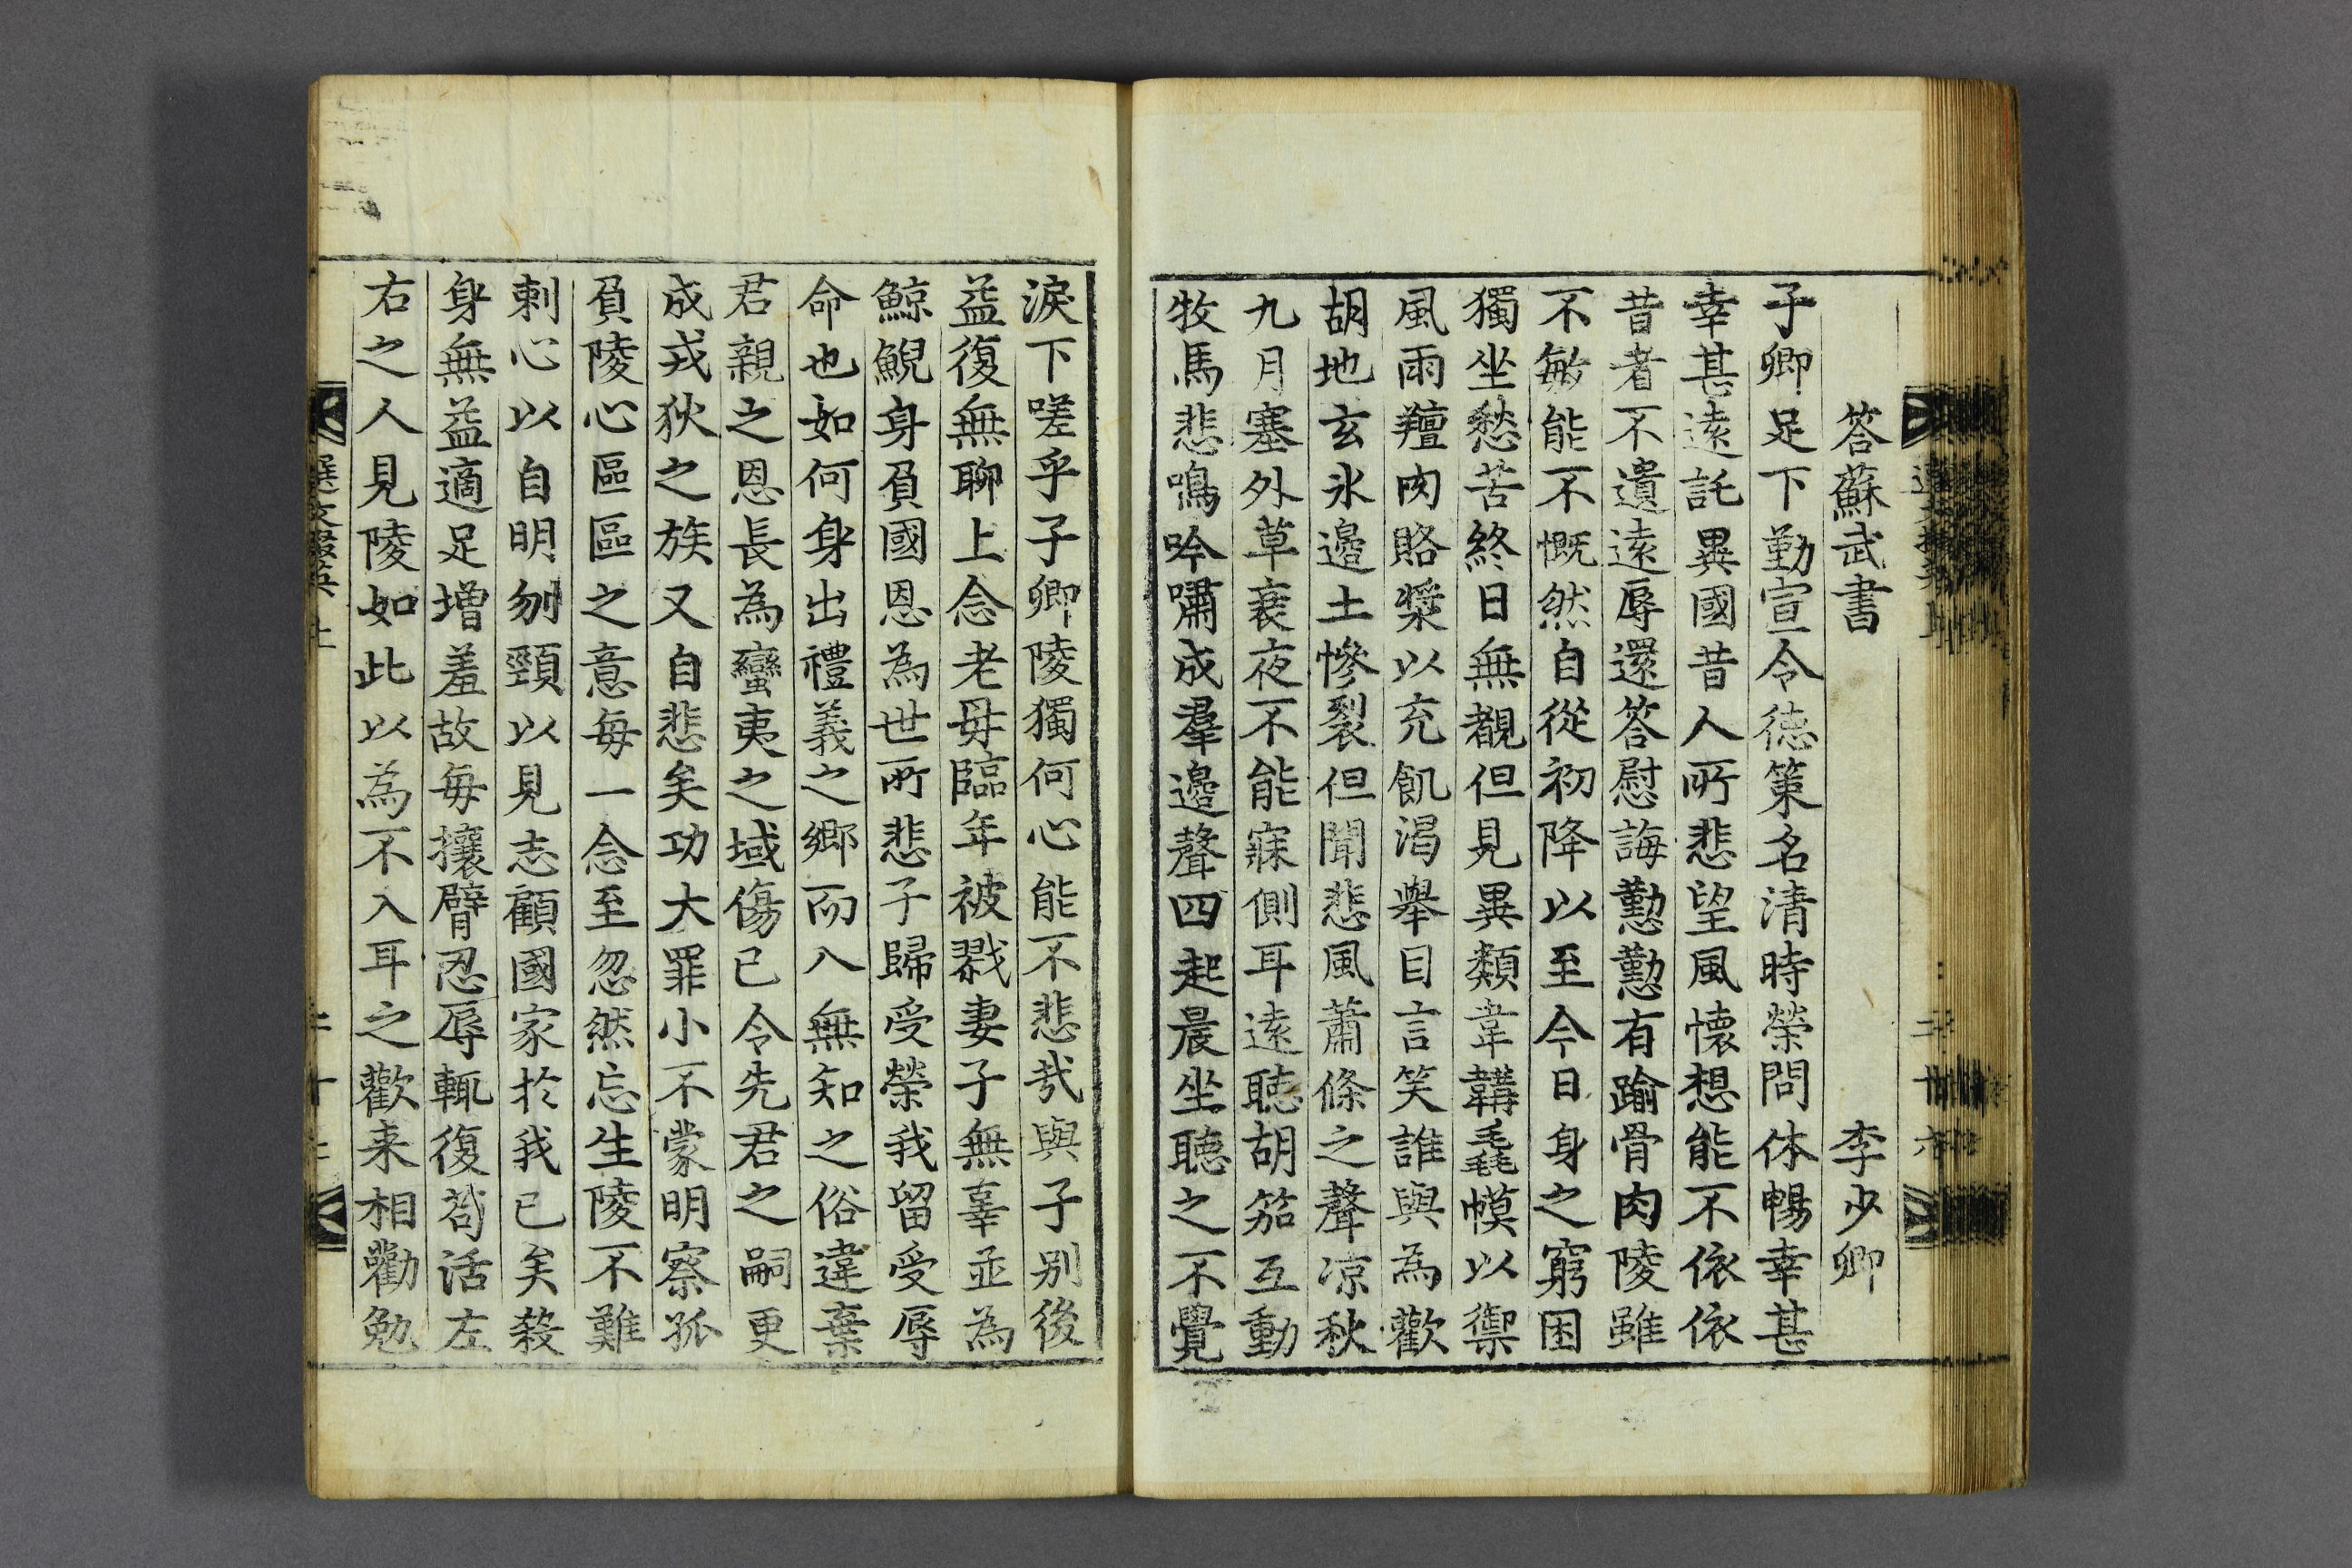 答蘇武書　李少卿
子卿足下勤宣令德策名清時榮問休暢幸甚
幸甚遠託異國昔人所悲望風懷想能不依依
昔者不遺遠辱還答慰誨懃懃有踰骨肉陵雖
不敏能不慨然自從初降以至今日身之窮困
獨坐愁苦終日無覩但見異類韋韝毳幙以禦
風雨羶肉酪漿以充飢渴舉目言笑誰與為歡
胡地玄氷邉土慘裂但聞悲風蕭條之聲凉秋
九月塞外草衰夜不能寐側耳遠聽胡笳互動
牧馬悲鳴吟嘯成羣邉聲四起晨坐聽之不覺
淚下嗟乎子卿陵獨何心能不悲哉與子别後
益復無聊上念老母臨年被戮妻子無辜並為
鯨鯢身負國恩為世所悲子歸受榮我留受辱
命也如何身出禮義之鄉而入無知之俗違棄
君親之恩長為蠻夷之域傷已令先君之嗣更
成戎狄之族又自悲矣功大罪小不蒙明察孤
負陵心區區之意每一念至忽然忘生陵不難
刺心以自明刎頸以見志顧國家於我已矣殺
身無益適足增羞故每攘臂忍辱輒復苟活左
右之人見陵如此以為不入耳之歡来相勸勉